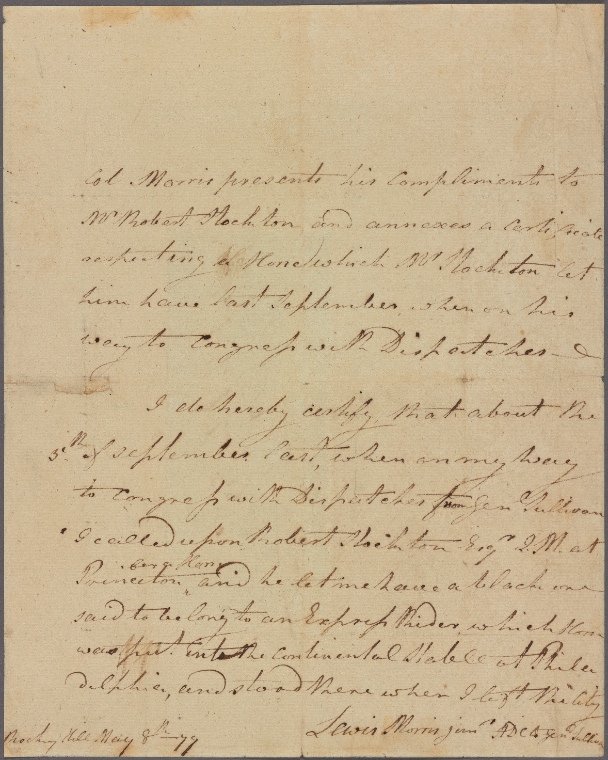 Col Morris presents his Compliments to
Mr Robert Stockton and annexes a Certificate
respecting a Horse which Mr Stockton let
him have last September when on his
way to Congress with Dispatches
I do hereby certify that about the
5th of September last, when on my way
to Congress with Dispatches from Genl Sullivan
I called upon Robert Stockton Esqr Q.M. at
Princeton, and he let me have a black one
said to belong to an Express Rider, which Horse
was put into the Continental Stable at Phila
delphia, and stood there when I left the City
Lewis Morris junr ADC to Genl Sullivan
Rocky Hill May 8th 79